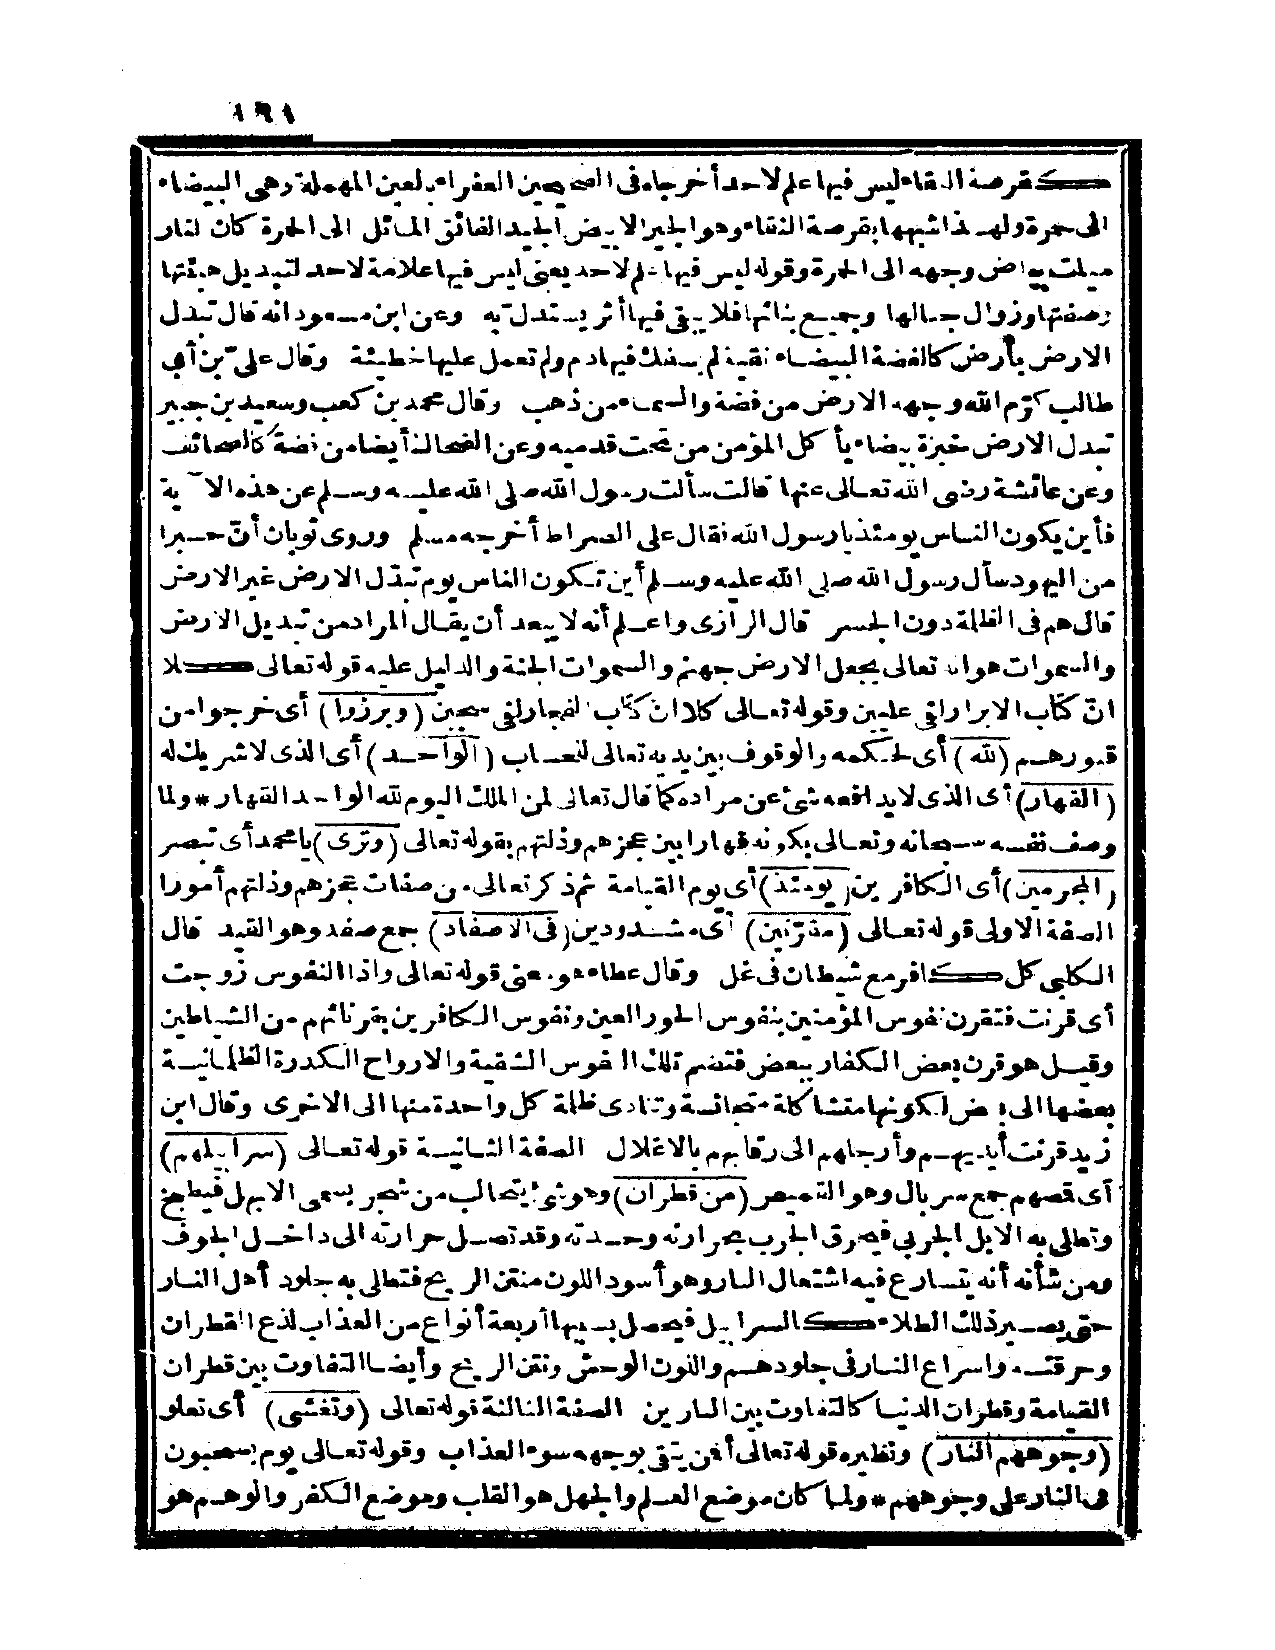 ١٩١
كقرصة النقاء ليس فيها علم لاحد أخرجاه في الصحيحين العفراء بالعين المهملة وهي البيضاء
الى حمرة ولهذا شبهها بقرصة النقاء وهو الخبز الابيض الجيد الفائق المائل الى الحمرة كان النار
ميلت بياض وجهه الى الحمرة وقوله ليس فيها علم لاحد يعنى ليس فيها علامة لاحد لتبديل هيئتها
وصفتها وزوال جبالها وجميع بنائها فلا يبقى فيها أثر يستدل به وعن ابن مسعود انه قال تبدل
الارض بأرض كالفضة البيضاء نقية لم يسفك فيها دم ولم تعمل عليها خطيئة وقال على بن أبى
طالب كرم الله وجهه الارض من فضة والسماء من ذهب وقال محمد بن كعب وسعيد بن جبير
تبدل الارض خبزة بيضاء يأكل المؤمن من تحت قدميه وعن الضحاك أيضا من فضة كالصحائف
وعن عائشة رضى الله تعالى عنها قالت سألت رسول الله صلى الله عليه وسلم عن هذه الآية
فأين يكون الناس يومئذ يارسول الله فقال على الصراط أخرجه مسلم وروى ثوبان أن حبرا
من اليهود سأل رسول الله صلى الله عليه وسلم أين تكون الناس يوم تبدل الارض غير الارض
قال هم فى الظلمة دون الجسر قال الرازى واعلم أنه لا يبعد أن يقال المراد من تبديل الارض
والسموات هو انه تعالى يجعل الارض جهنم والسموات الجنة والدليل عليه قوله تعالى كلا
ان كتاب الابرار لفى عليين وقوله تعالى كلا ان كتاب الفجار لفى سجين (وبرزوا) أى خرجوا من
قبورهم (لله) أى لحكمه والوقوف بين يديه تعالى للحساب (الواحد) أى الذى لا شريك له
(القهار) أى الذى لا يدافعه شئ عن مراده كما قال تعالى لمن الملك اليوم لله الواحد القهار * ولما
وصف نفسه سبحانه وتعالى بكونه قهارا بين عجزهم وذلتهم بقوله تعالى (وترى) يا محمد أى تبصر
(المجرمين) أى الكافرين (يومئذ) أى يوم القيامة ثم ذكر تعالى من صفات عجزهم وذلتهم أمورا
الصفة الاولى قوله تعالى (مقرّنين) أى مشدودين (فى الاصفاد) جمع صفد وهو القيد قال
الكلبى كل كافر مع شيطان فى غل وقال عطاء هو معنى قوله تعالى واذا النفوس زوجت
أى قرنت فتقرن نفوس المؤمنين بنفوس الحور العين ونفوس الكافرين بقرنائهم من الشياطين
وقيل هو قرن بعض الكفار ببعض فتضم تلك النفوس الشقية والارواح الكدرة الظلمانية
بعضها الى بعض لكونها متشاكلة متجانسة وتنادى ظلمة كل واحدة منها الى الاخرى وقال ابن
زيد قرنت أيديهم وأرجلهم الى رقابهم بالاغلال الصفة الثانية قوله تعالى (سرابيلهم)
أى قمصهم جمع سربال وهو القميص (من قطران) وهو شئ يتحالب من شجر يسمى الابهل فيطبخ
وتطلى به الابل الجربى فيحرق الجرب بحرارته وحدته وقد تصل حرارته الى داخل الجوف
ومن شأنه أنه يتسارع فيه اشتعال النار وهو أسود اللون منتن الريح فتطلى به جلود أهل النار
حتى يصير ذلك الطلاء كالسرابيل فيحصل بسببها أربعة أنواع من العذاب لذع القطران
وحرقته واسراع النار فى جلودهم واللون الوحش ونتن الريح وأيضا التفاوت بين قطران
القيامة وقطران الدنيا كالتفاوت بين النارين الصفة الثالثة قوله تعالى (وتغشى) أى تعلو
(وجوههم النار) ونظيره قوله تعالى أفمن يتقى بوجهه سوء العذاب وقوله تعالى يوم يسحبون
فى النار على وجوههم * ولما كان موضع العلم والجهل هو القلب وموضع الكفر والوهم هو